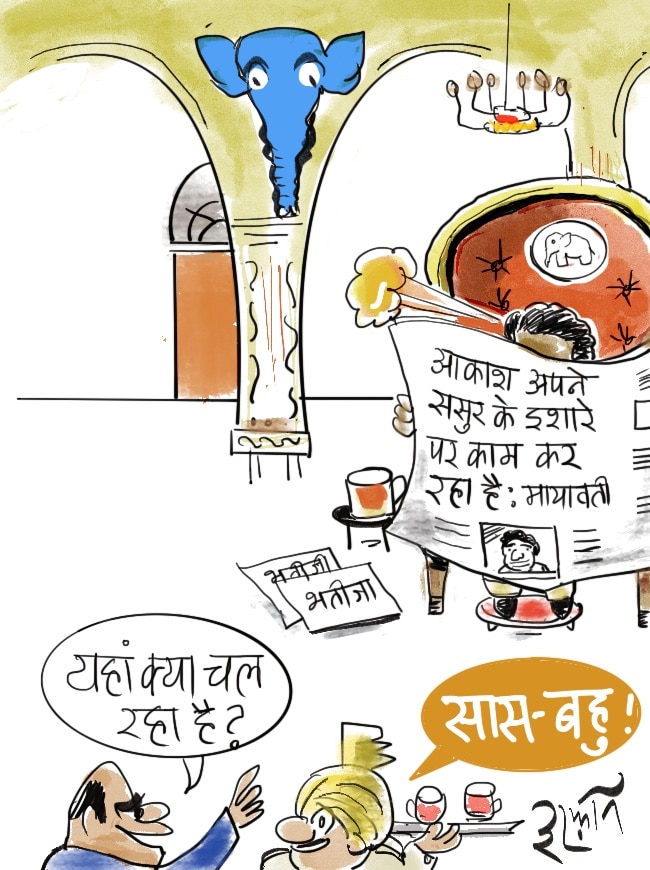 आकाश अपने
ससुर के इशारे
पर काम कर
रहा है : मायावती
भतीजी
भतीजा
यहां क्या चल
रहा है?
सास-बहु!